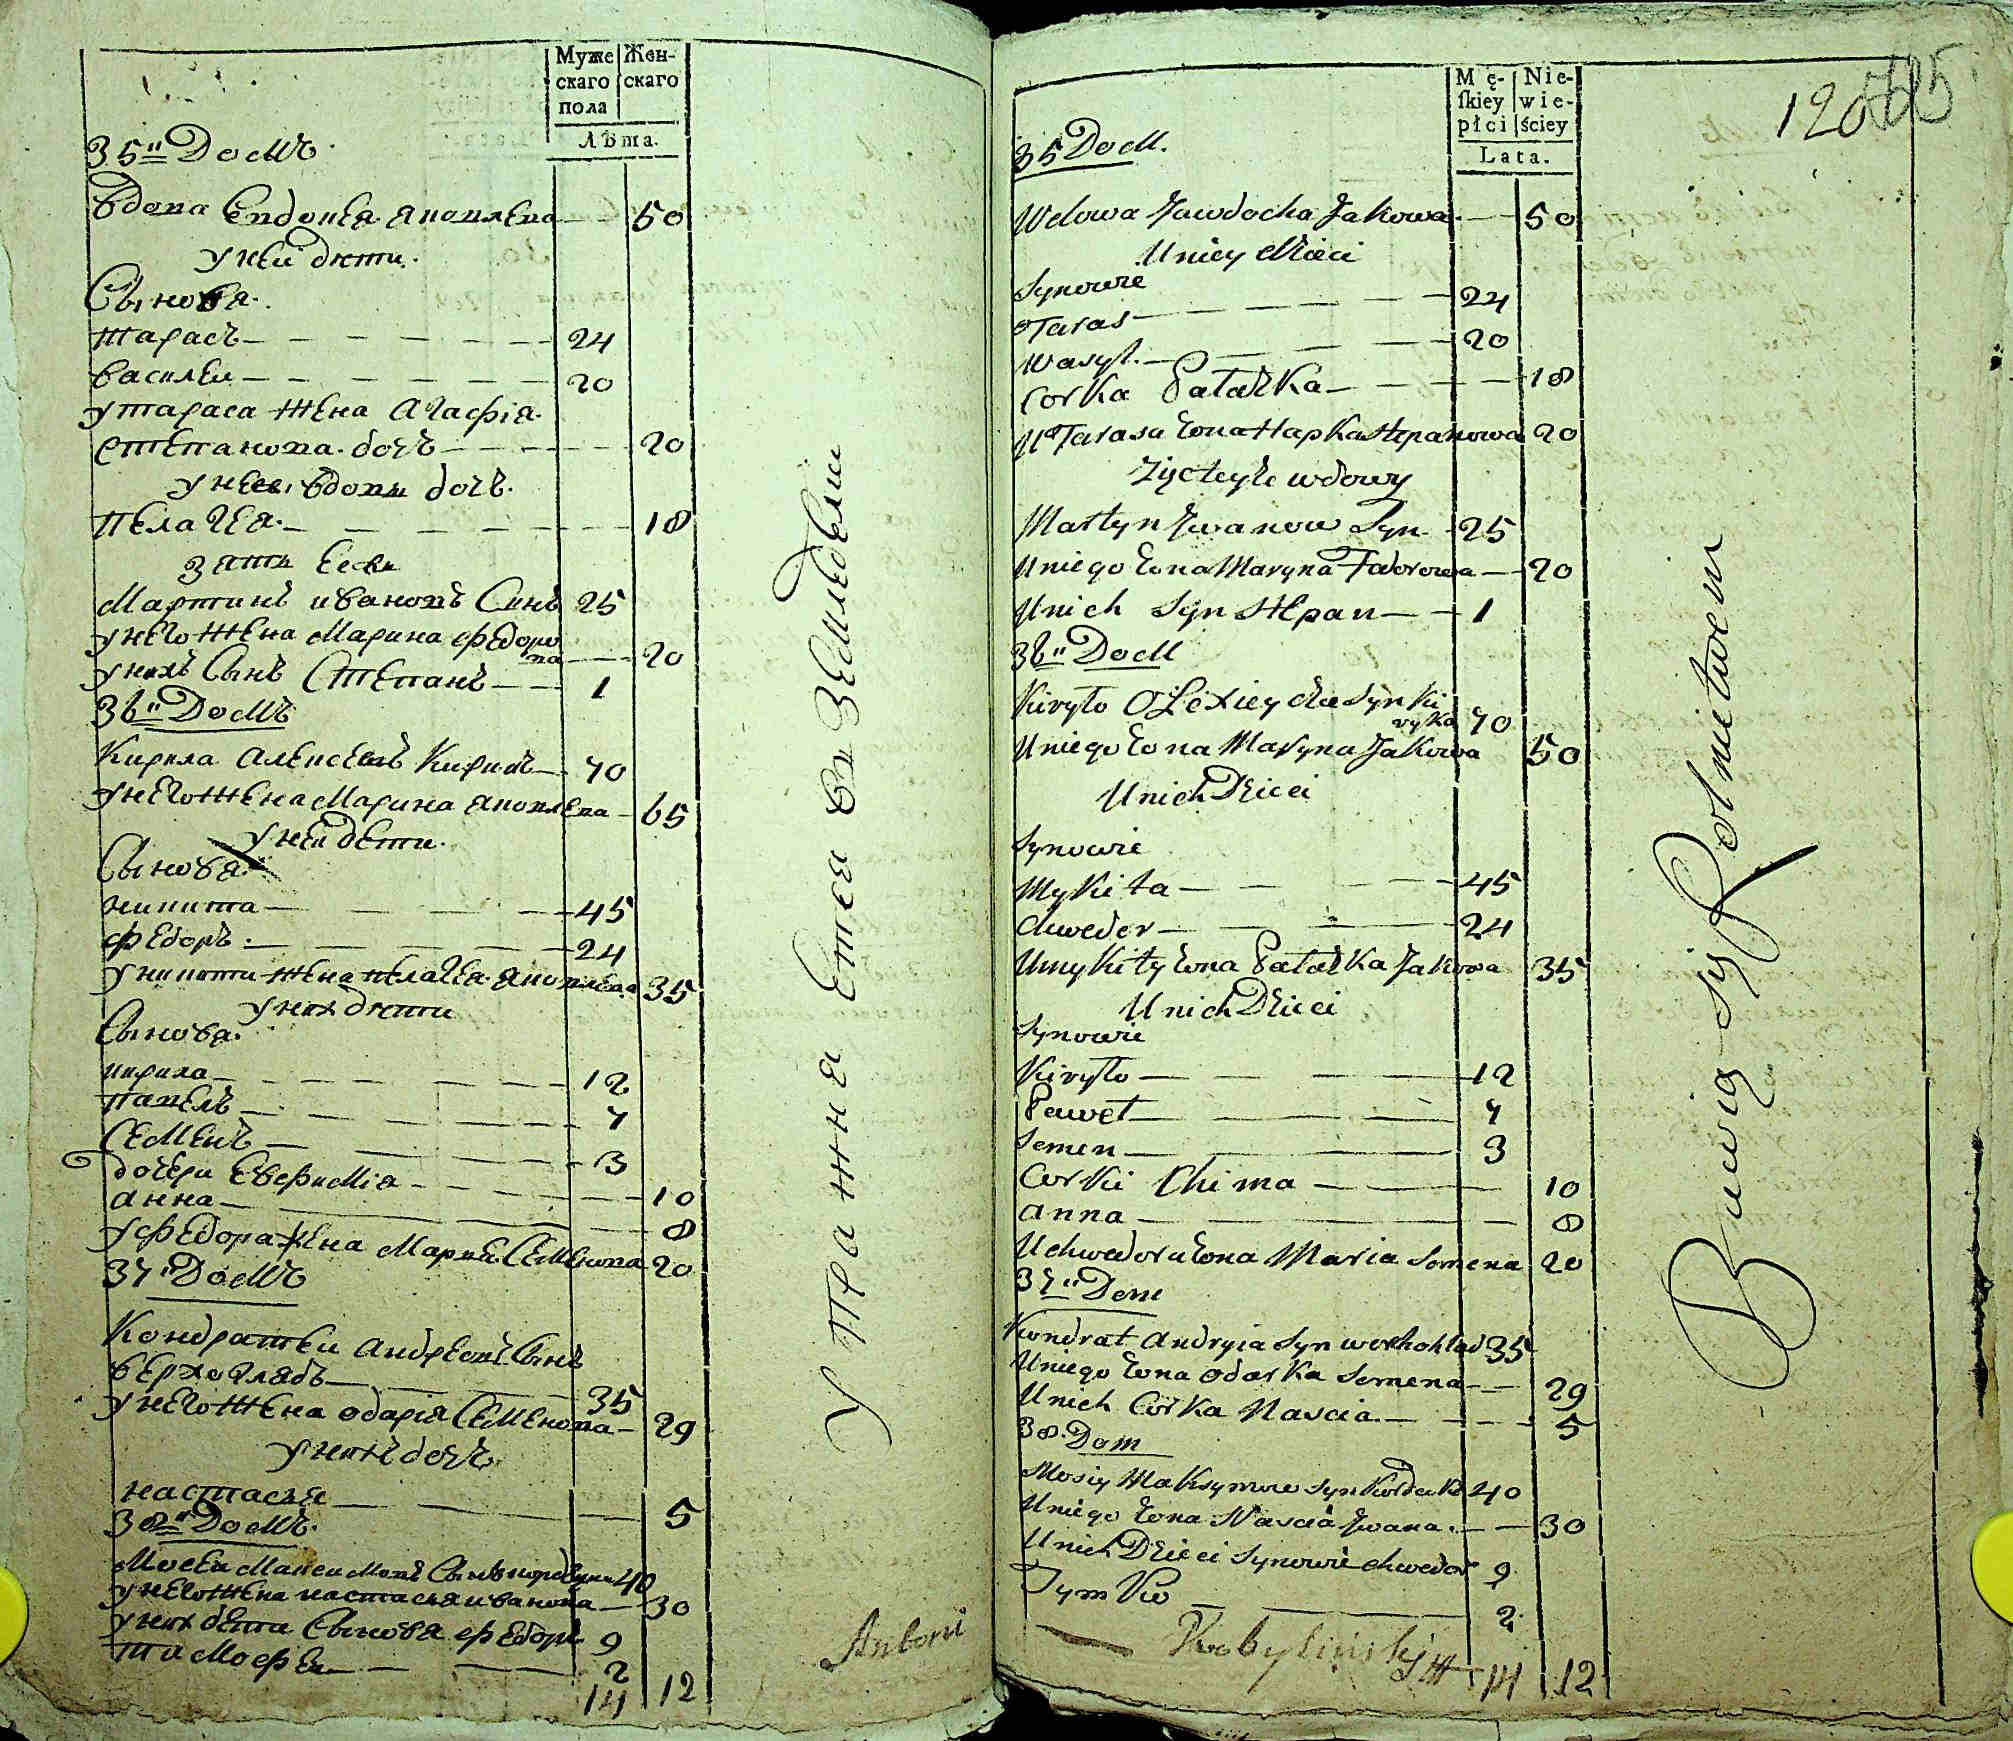 Муже
скаго
пола
Жен-
скаго
Лѣта.
35" Домъ.
Вдова Евдокея Яковлева — 50
у ней дети.
Сынова.
тарасъ — 24
василеи — 20
у тараса жена Агафiя
степанова дочь — 20
у неи вдовы дочь.
пелагея — 18
зять
мартинъ ивановъ Синъ 25
у него жена Марина федоро
ва — 20
у нихъ Сынъ Степанъ — 1
36" Домъ
Кирила Алексеевъ — 70
у него жена Марина яковлева — 65
у неи дети.
Сынова.
никита — 45
федоръ — 24
у никити жена пелагея яковлева 35
у нихъ дети
Сынова.
кирила — 12
павелъ — 7
семенъ — 3
дочери Евфимiя — 10
анна — 8
у федора жена Мария Семенова 20
37" Домъ
Кондратеи андреевъ Сынъ
верхоглядъ — 35
у него жена одарiя Семенова — 29
у нихъ дочь
настасья — 5
38" Домъ.
Мосеи Максимовъ Сынъ 40
у него жена настася иванова — 30
у нихъ дети Сынова федоръ 9
тимофеи — 2
14 12
Упражняется въ Земледелии
Antoni
Mę-
ſkiey
płci
Nie-
wie-
ściey
Lata.
120
35 Dom.
Wdowa Jawdocha Jakowa — 50
U niey dzieci
Synowie
Taras — 24
Wasyl — 20
Corka Pałażka — 18
U Tarasa żona Hapka Stepanowa 20
Zięć teyże wdowy
Martyn Jwanow Syn 25
U niego żona Maryna Fedorowa — 20
U nich Syn Stepan — 1
36" Dom
Kiryło Olexieycha Syn Ki
ryka 70
U niego żona Maryna Jakowa 50
U nich Dzieci
Synowie
Mykita — 45
Chwedor — 24
U Mykity żona Pałażka Jakowa 35
U nich Dzieci
Synowie
Kiryło — 12
Paweł — 7
Semen — 3
Corki Chima — 10
Anna — 8
U Chwedora żona Maria Semena 20
37" Dom
Kondrat Andryia Syn Werhohlad 35
U niego żona Odarka Semena — 29
U nich Corka Nascia — 5
38. Dom
Mosiy Maksymow Syn 40
U niego żona Nascia Jwana — 30
U nich Dzieci Synowie Chwedor 9
Tymko — 2
Kobyliński
14 12
Bawią się Rolnictwem